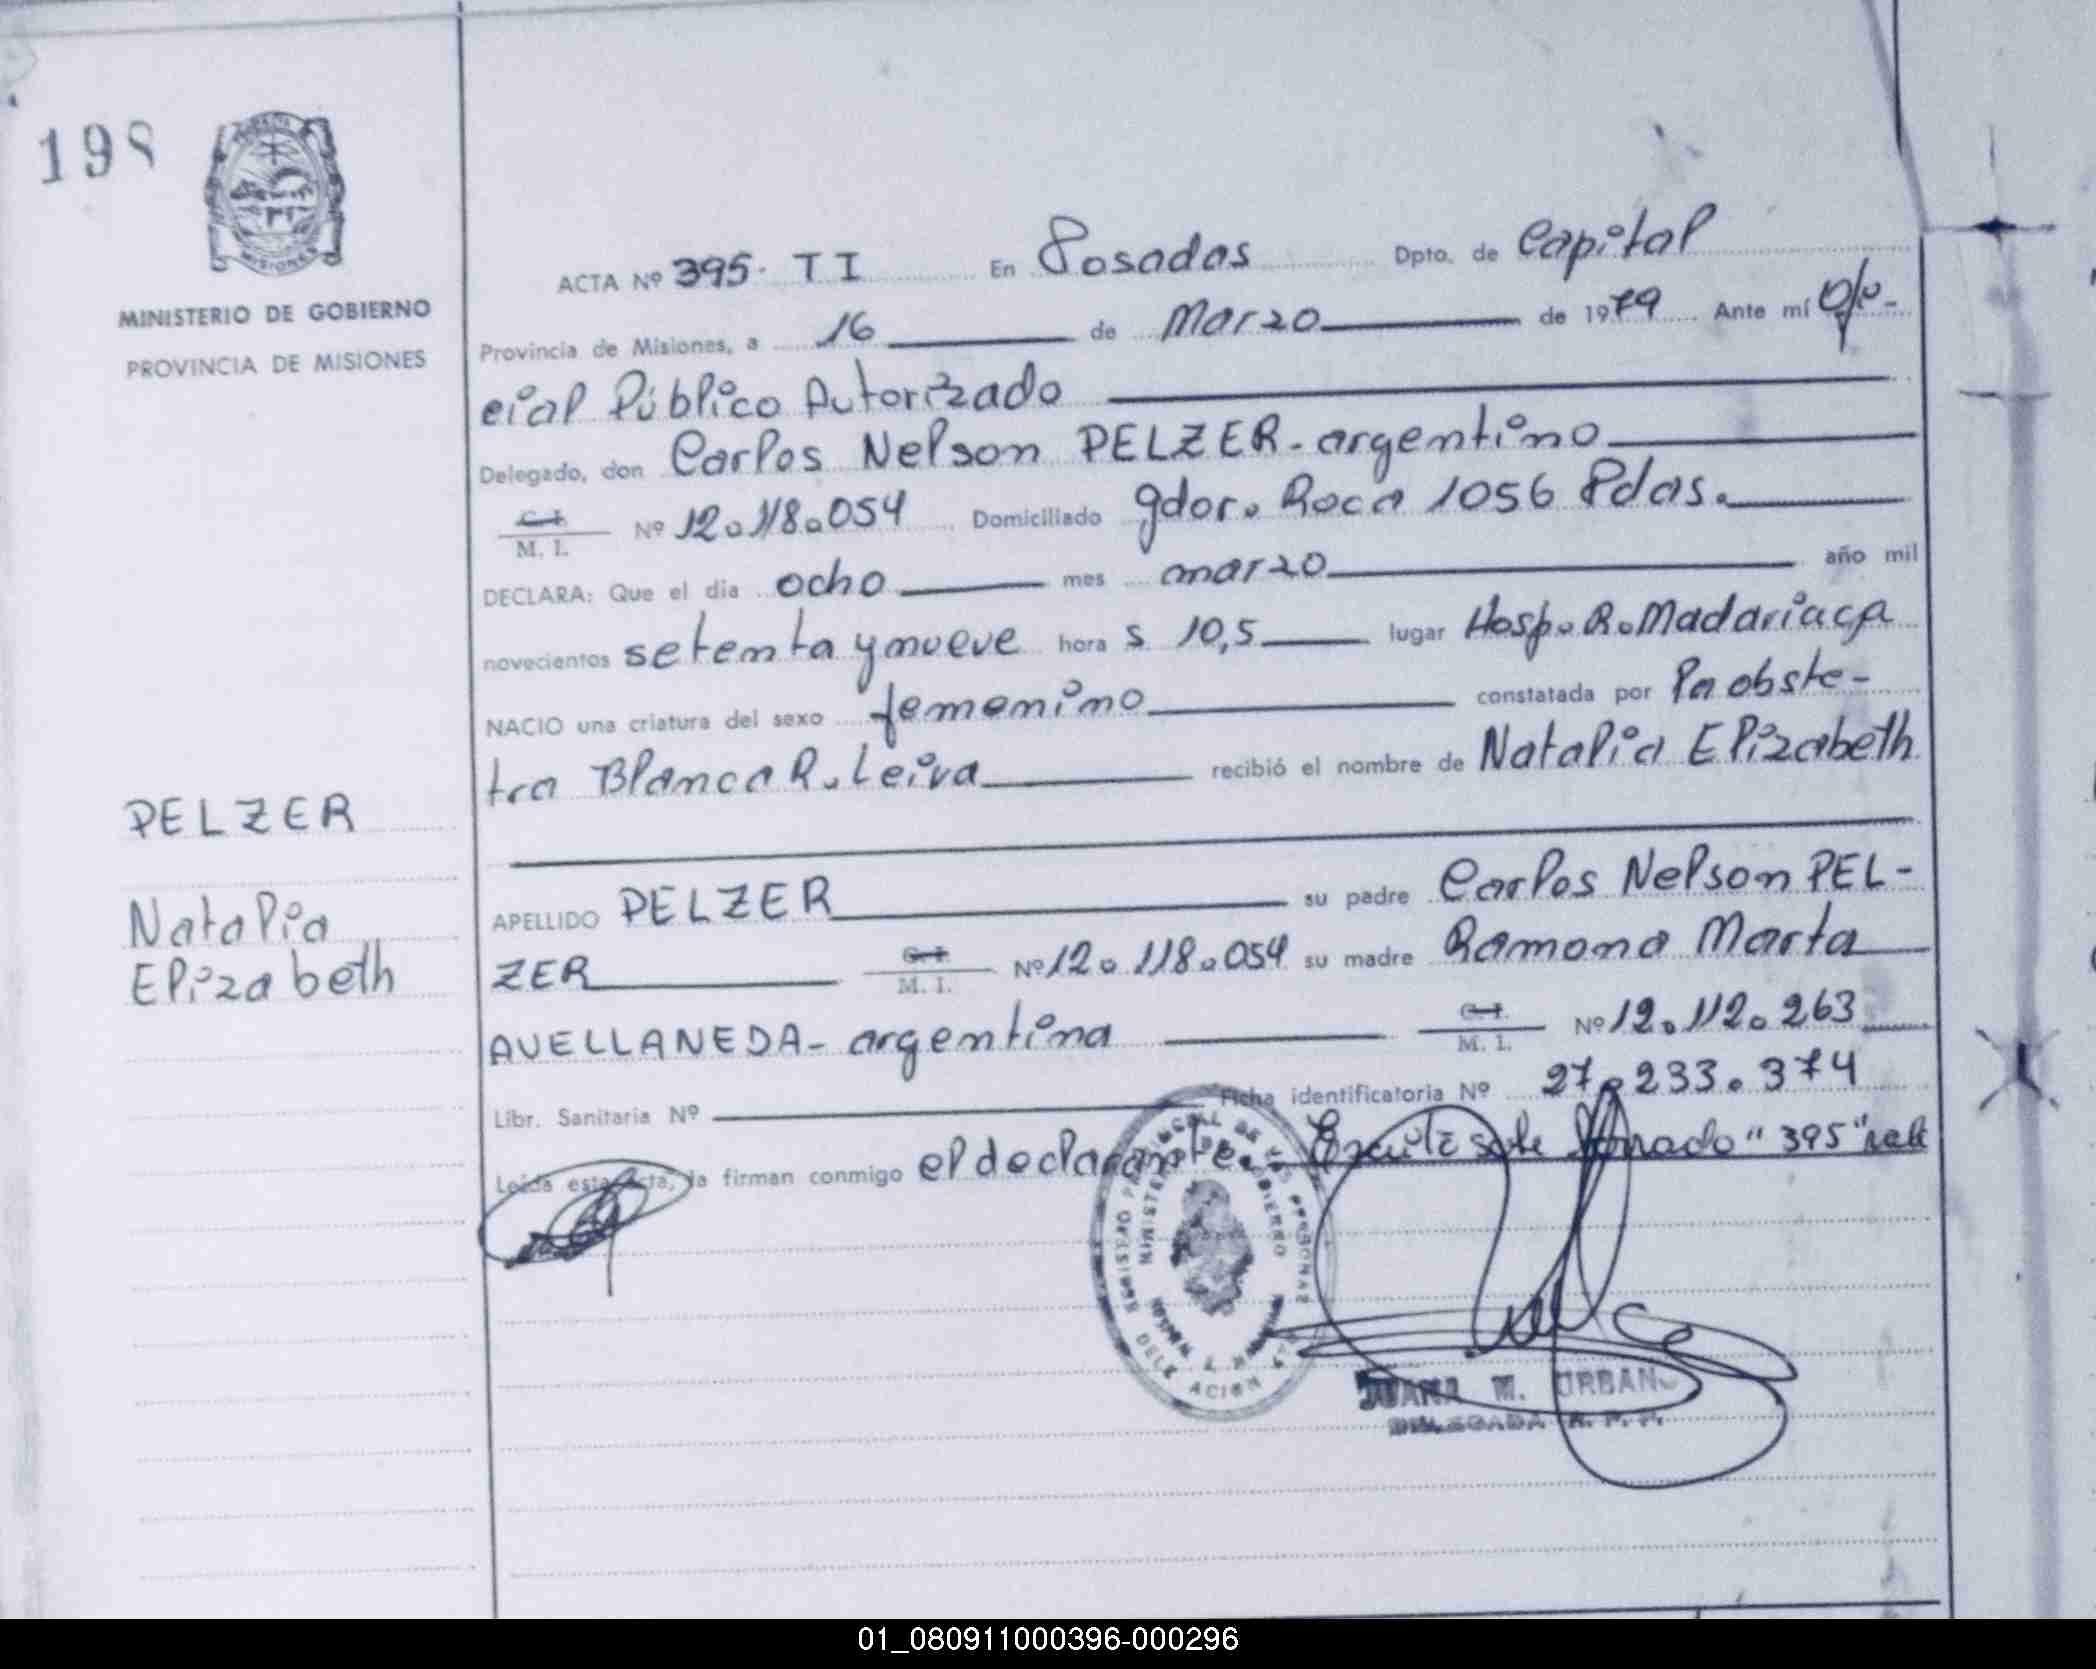 198
MINISTERIO DE GOBIERNO
PROVINCIA DE MISIONES
MISIONES
ACTA Nº 395. TI En Posadas Dpto. de Capital
Provincia de Misiones, a 16 de Marzo de 1979 Ante mí Ofi-
cial Público Autorizado
Delegado, don Carlos Nelson PELZER - argentino
C.I. M. I. Nº 12.118.054 Domiciliado gdor. Roca 1056 Pdas.
DECLARA: Que el dia ocho mes marzo año mil
novecientos setenta y nueve hora s 10,5 lugar Hosp. R. Madariaga
NACIO una criatura del sexo femenino constatada por la obste-
tra Blanca R. Leiva recibió el nombre de Natalia Elizabeth
PELZER
Natalia
Elizabeth
APELLIDO PELZER su padre Carlos Nelson PEL-
ZER C.I. M. I. Nº 12.118.054 su madre Ramona Marta
AVELLANEDA - argentina C.I. M. I. Nº 12.112.263
Libr. Sanitaria Nº Ficha identificatoria Nº 27.233.374
Leída esta acta, la firman conmigo el declarante. "395"
JUANA M. URBANO
DELEGADA R. P. P.
01_080911000396-000296